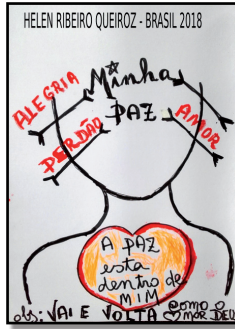 HELEN RIBEIRO QUEIROZ - BRASIL 2018
Minha
ALEGRIA
PAZ
AMOR
PERDÃO
A PAZ
esta
dentro de
MIM
obs: VAI E VOLTA como o
amor DEUS